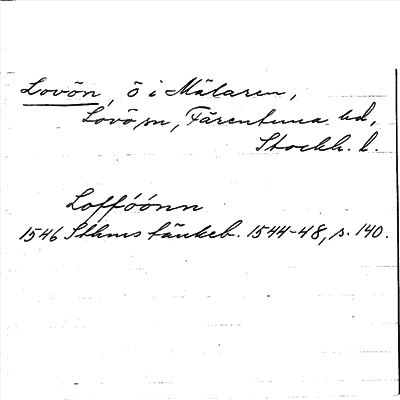 Lovön, ö i Mälaren,
Lovö sn, Färentuna hd,
Stockh. l.
Lofföónn
1546 Sthms tänkeb. 1544-48, s. 140.